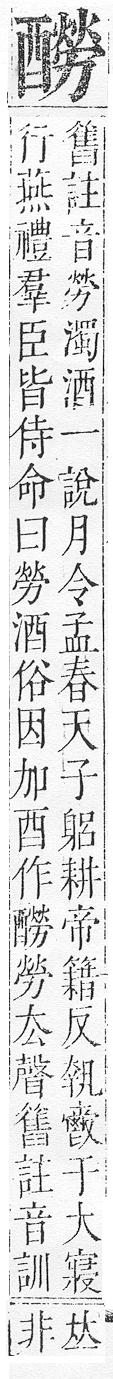 醪
舊註音勞濁酒一說月令孟春天子躬耕帝籍反執爵于大寢
行燕禮羣臣皆侍命曰勞酒俗因加酉作醪勞去聲舊註音訓
𠀤
非